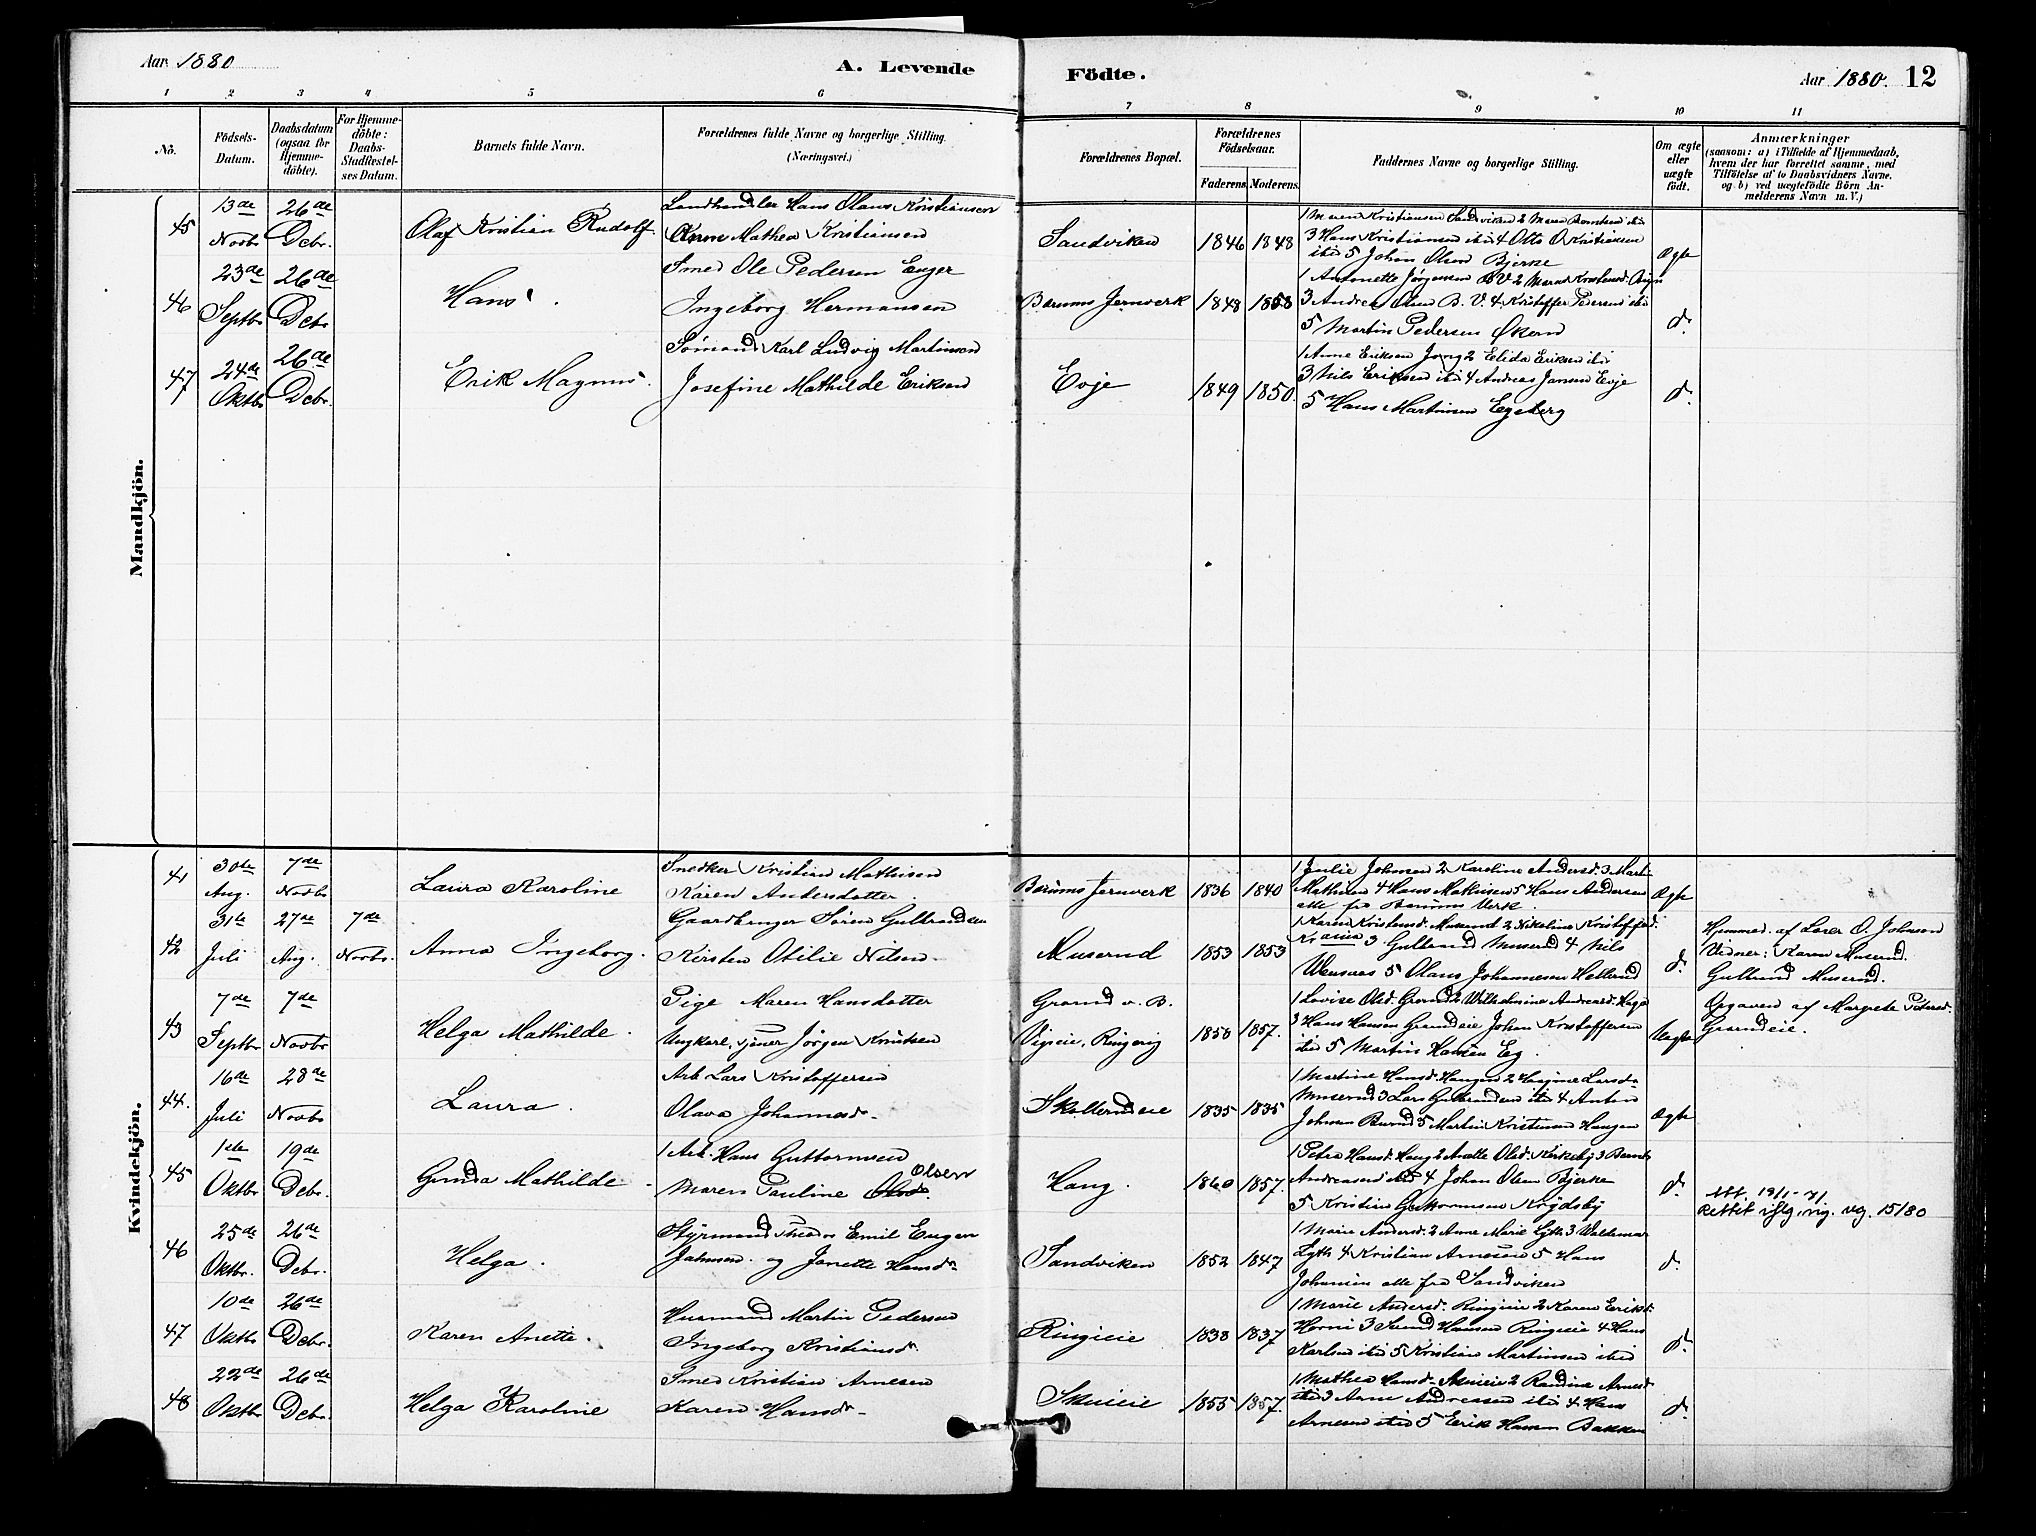 Aar 1880
A. Levende
Födte.
Aar 1880. 12
1 2 3 4 5 6 7 8 9 10 11
Nô.
Födsels-
Datum.
Daabsdatum
(ogsaa for
Hjemme-
döbte).
For Hjemme-
döbte:
Daabs-
Stadfæstel-
ses Datum.
Barnets fulde Navn.
Forældrenes fulde Navne og borgerlige Stilling.
(Næringsvei.)
Forældrenes Bopæl.
Forældrenes
Födselsaar.
Faderens. Moderens.
Faddernes Navne og borgerlige Stilling.
Om ægte
eller
uægte
födt.
Anmærkninger
(saasom: a) i Tilfælde af Hjemmedaab,
hvem der har forrettet samme, med
Tilföielse af to Daabsvidners Navne.
og b) ved uægtefödte Börn An-
melderens Navn m. V.)
Mandkjön.
45
13de
Novbr
26de
Debr.
Olaf Kristian Rudolf.
Landhandler Hans Olaus Kristiansen
Anne Mathea Kristiansen
Sandviken
1846 1848
1 Maren Kristiansen Sandviken 2 Maren
3 Hans Kristiansen ibid 4 Otto O Kristiansen
ibid 5 Johan Olsen Bjerke
Ægte
46
23de
Septbr
26de
Debr
Hans
Smed Ole Pedersen Enger
Ingeborg Hermansen
Bærums Jernverk
1848 1858
1 Antonette Jørgensen B V 2 Maren
3 Andrea Olsen B. V. 4 Kristoffer Pedersen ibid
5 Martin Pedersen Økern
do
47
24de
Oktbr
26de
Debr.
Erik Magnus.
Sømand Karl Ludvig Martinsen
Josefine Mathilde Eriksen
Evje
1849 1850.
1 Anne Eriksen Jong 2 Elida Eriksen ibid
3 Nils Eriksen ibid 4 Andreas Jansen Evje
5 Hans Martinsen Egeberg
do
Kvindekjön.
41
30te
Aug.
7de
Novbr
Laura Karoline
Snedker Kristian Mathisen
Karen Andersdatter
Bærums Jernverk
1836 1840
1 Julie Johnsen 2 Karoline Andersd. 3 Martin
Mathisen 4 Hans Mathisen 5 Hans Andersen
alle fra Bærums Verk.
Ægte
42
31te
Juli
27de
Aug.
7de
Novbr.
Anna Ingeborg.
Gaardbruger Søren Gulbrandsen
Kirsten Otilie Nilsen
Muserud
1853 1853
1 Karen Kristensd. Muserud 2 Nikoline Kristoffersd.
Krania 3 Gulbrand Muserud 4 Nils
5 Olaus Johannesen Helland
do
Hjemmed. af Lærer O. Johnsen
Vidner: Karen Muserud.
Gulbrand Muserud.
43
7de
Septbr
7de
Novbr
Helga Mathilde.
Pige Maren Hansdatter
Ungkarl, tjener Jørgen Knutsen
Grand v. B.
Vigeie, Ringerig
1858 1857.
1 Lovise Olsd. Grand 2 Wilhelmine Andersd. Haga
3 Hans Hansen Grandeie Johan Kristoffersen
ibid 5 Martin Hansen Eg.
Uægte
Opgaven af Margrete Petersd.
Grandeie.
44.
16de
Juli
28de
Novbr
Laura.
Arb Lars Kristoffersen
Olava Johannesd.
Skollerudeie
1835 1835
1 Martine Hansd. Haugen 2 Larsd.
Muserud 3 Lars Gulbrandsen ibid 4 Anton
Johnsen Burud 5 Martin Kristiansen Haugen
Ægte
45
1ste
Oktbr
19de
Debr.
Gunda Mathilde
Arb. Hans Guttormsen
Olsen
Maren Pauline Olsd.
Haug.
1860 1857.
1 Petra Hansd. Haug 2 Anette Olsd. Kirkeby 3 Bernt
Andreasen ibid 4 Johan Olsen Bjerke
5 Kristian Guttormsen
do
Att. 19/1-71
Rettet iflg. vig. reg. 15/80
46
25de
Oktbr.
26de
Debr.
Helga.
Styrmand Theodor Emil Eugen
Johnsen og Janette Hansd.
Sandviken
1852 1847
1 Marie Andersd. 2 Anne Marie Lyth 3 Waldemar
Lyth 4 Kristian Arnesen 5 Hans
Johansen alle fra Sandviken
do
47
10de
Oktbr
26de
Debr.
Karen Anette.
Husmand Martin Pedersen
Ingeborg Kristiansd.
Ringieie
1838 1837
1 Marie Andersd. Ringieie 2 Karen Eriksd.
Horni 3 Hansen Ringieie 4 Hans
Karlsen ibid 5 Kristian Martinsen ibid
do
48
22de
Oktbr
26de
Debr.
Helga Karoline
Smed Kristian Arnesen
Karen Hansd.
Skuieie
1855 1857.
1 Mathea Hansd. Skuieie 2 Randine Arnesd.
ibid 3 Arne Andreassen ibid 4 Hans
Arnesen ibid 5 Erik Hansen Bakken
do